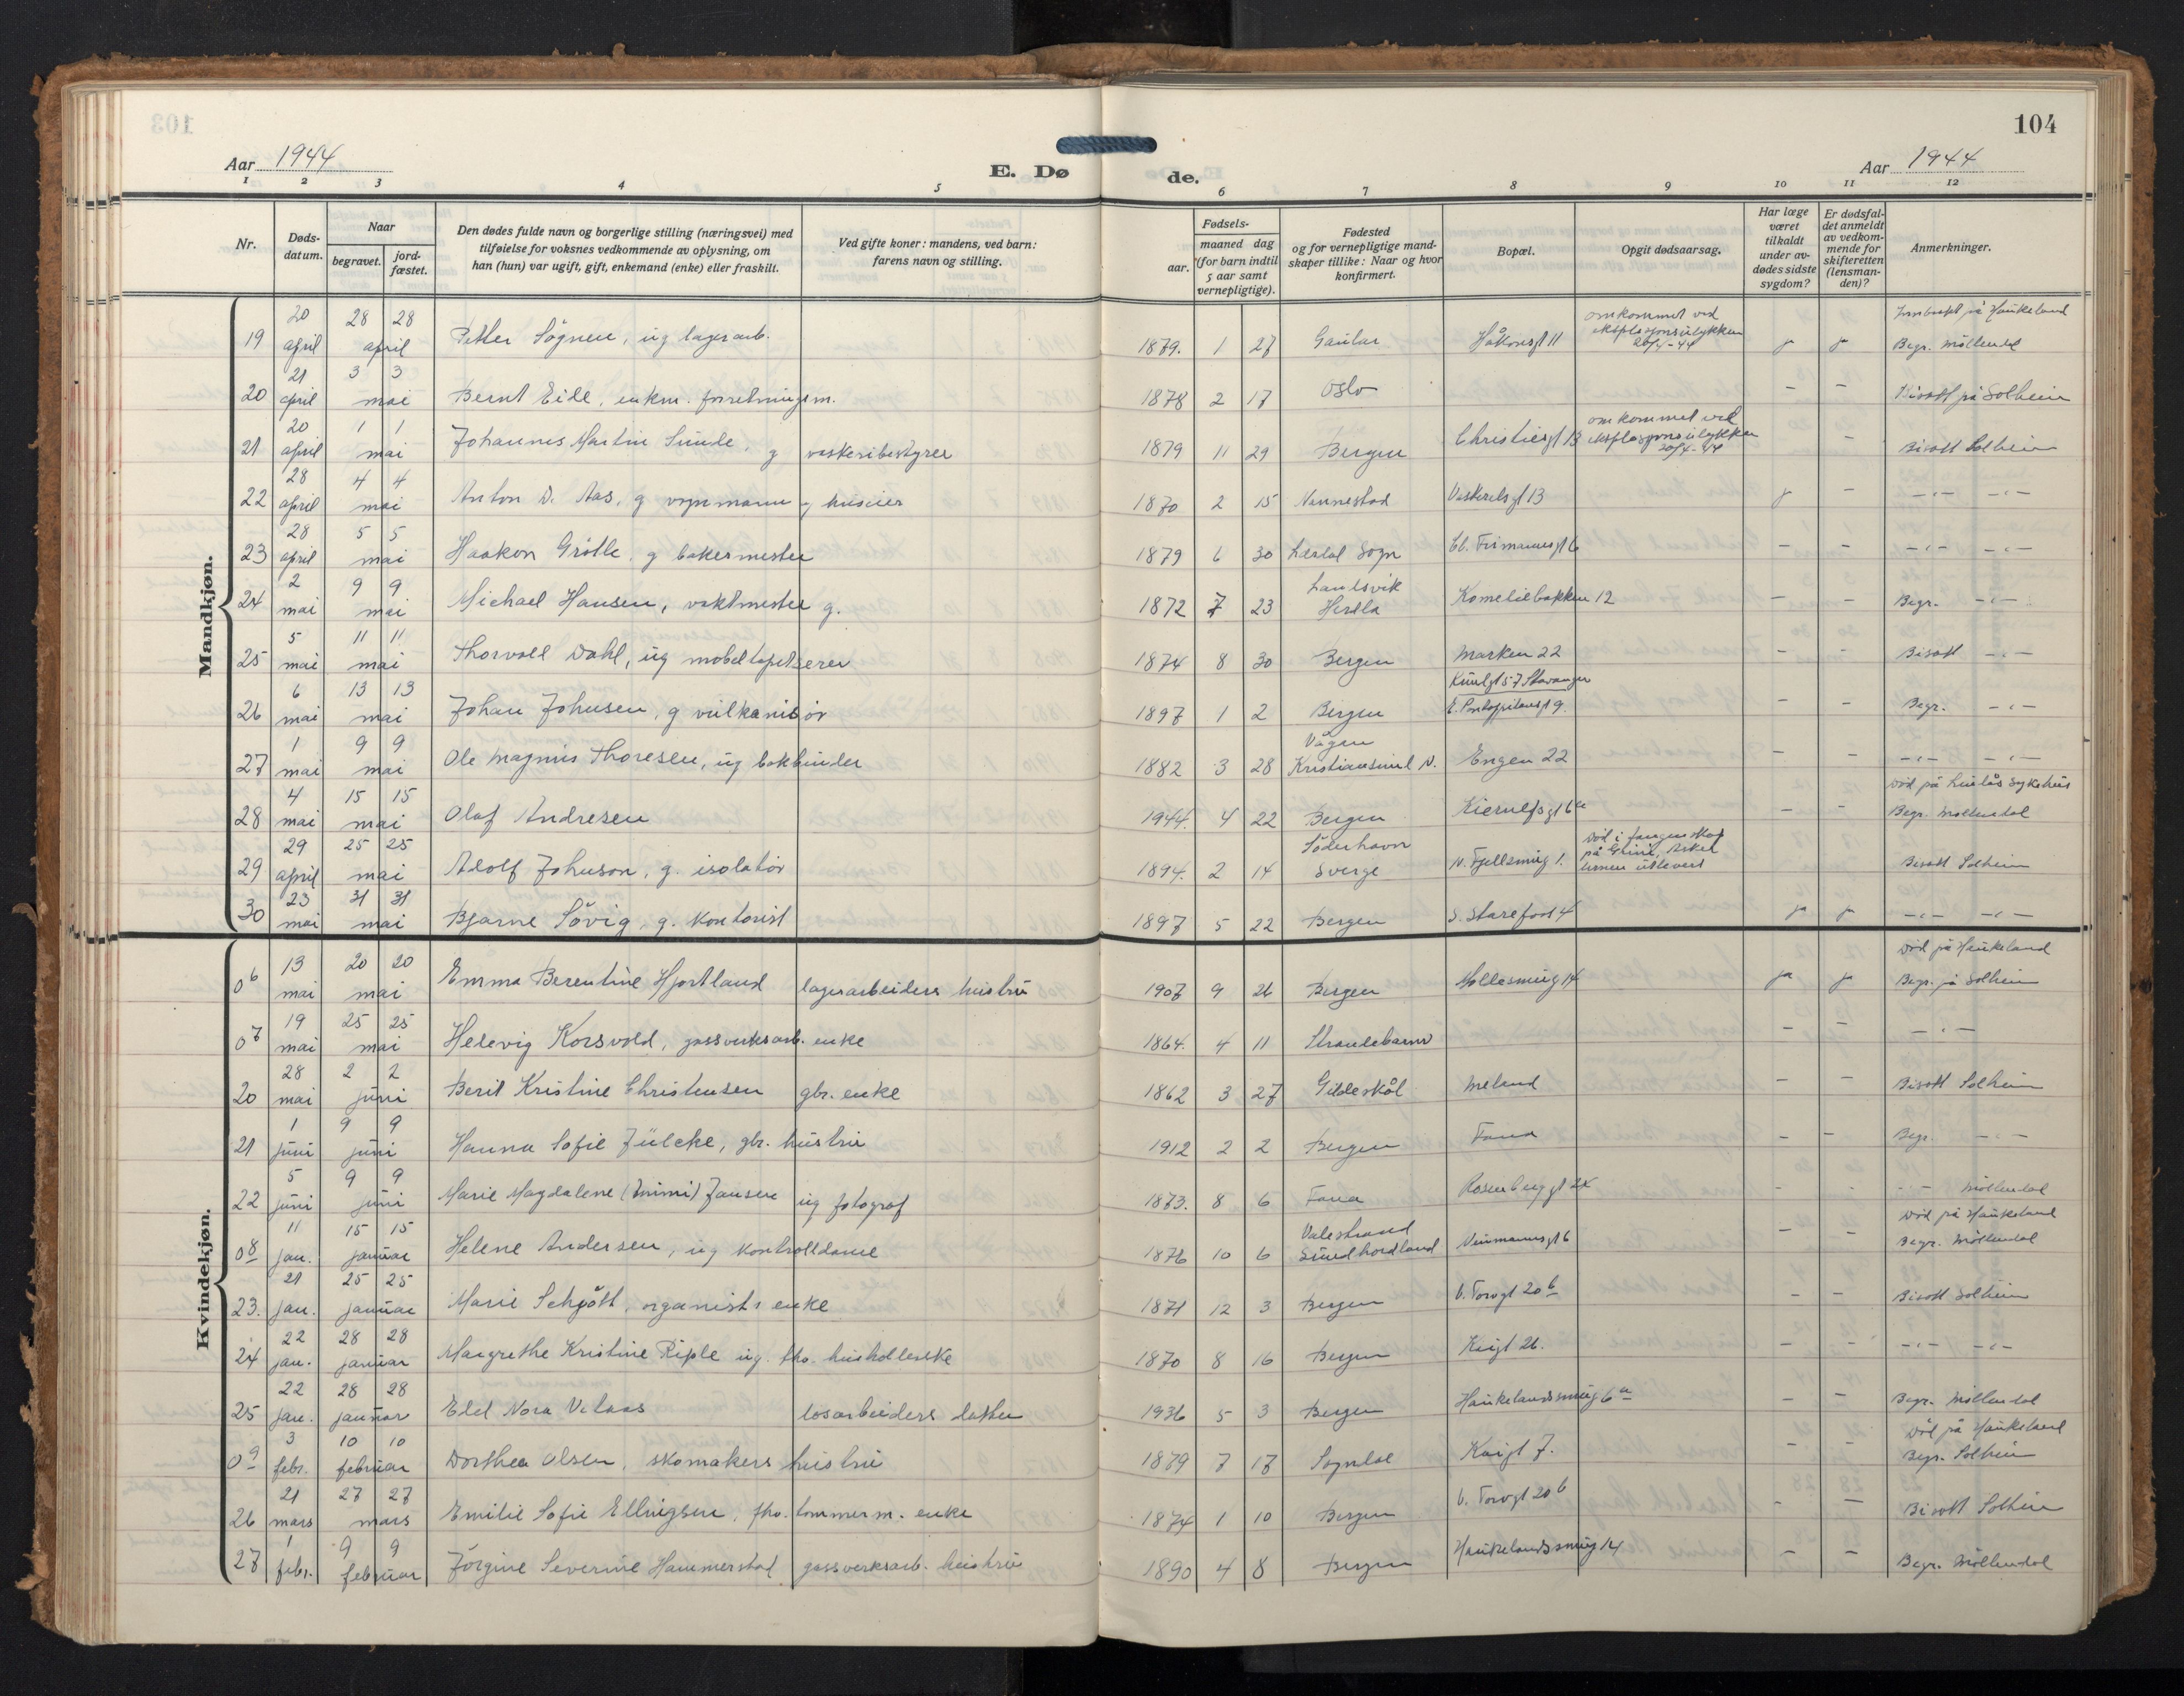 103
104
Aar 1944
E. Dø
de.
Aar 1944
1 2 3 4 5 6 7 8 9 10 11 12
Nr.
Døds-
datum.
Naar
begravet.
jord-
fæstet.
Den dødes fulde navn og borgerlige stilling (næringsvei) med
tilføielse for voksnes vedkommende av oplysning, om
han (hun) var ugift, gift, enkemand (enke) eller fraskilt.
Ved gifte koner: mandens, ved barn:
farens navn og stilling.
Fødsels-
aar.
maaned dag
(for barn indtil
5 aar samt
vernepligtige).
Fødested
og for vernepligtige mand-
skaper tillike: Naar og hvor
konfirmert.
Bopæl.
Opgit dødsaarsag.
Har læge
været
tilkaldt
under av-
dødes sidste
sygdom?
Er dødsfal-
det anmeldt
av vedkom-
mende for
skifteretten
(lensman-
den)?
Anmerkninger.
Mandkjøn.
19 20 april 28 28 april Petter Sögnen, ug lagerarb. 1879. 1 27 Gaular Håkonsgt 11 omkommet ved eksplosjonsulykken 20/4-44 j j på Haukeland Begr. Möllendal
20 21 april 3 3 mai Bernt Eide, enkm. forretningsm. 1878 2 17 Oslo – – Bisatt på Solheim
21 20 april 1 1 mai Johannes Martin Sunde, g vaskeribestyrer 1879 11 29 Bergen Christiesgt 13 omkommet ved eksplosjonsulykken 20/4-44 – Bisatt Solheim
22 28 april 4 4 mai Anton D. Aas, g vognmann og huseier 1870 2 15 Nannestad 13 j – -"- -"-
23 28 april 5 5 mai Haakon Grötte, g bakermester 1879 6 30 Lærdal Sogn Cl. Frimannsgt 6 – – -"- -"-
24 2 mai 9 9 mai Michael Hansen, vaktmester g. 1872 7 23 Herdla Kameliebakken 12 – – Begr. -"-
25 5 mai 11 11 mai Thorvald Dahl, ug mobeltapetserer 1874 8 30 Bergen Marken 22 – – Bisatt -"-
26 6 mai 13 13 mai Johan Johnsen, g vulkanisör 1897 1 2 Bergen Stavanger 9. – – Begr. -"-
27 1 mai 9 9 mai Ole Magnus Thoresen, ug bokbinder 1882 3 28 Vågen Kristiansund N. Engen 22 – – -"- -"-
28 4 mai 15 15 mai Olaf Andresen 1944. 4 22 Bergen Kierulfsgt 6a – – Död på sykehus Begr. Möllendal
29 29 april 25 25 mai Adolf Johnson, g. isolatör 1894. 2 14 Söderhavn Sverge N. Fjellsmug 1. Död i fangenskap på Grini, Asker urnen utlevert Bisatt Solheim
30 23 mai 31 31 mai Bjarne Sövig, g. kontorist 1897 5 22 Bergen 4 ja ja -"- -"-
Kvindekjøn.
06 13 mai 20 20 mai Emma Berentine Hjortland lagerarbeiders hustru 1907 9 26 Bergen 14 ja j Död på Haukeland Begr. på Solheim
07 19 mai 25 25 mai Helevig Korsvold, gassverksarb. enke 1864. 4 11 Strandebarm – – -"-
20 28 mai 2 2 juni Berit Kristine Christensen gbr. enke 1862 3 27 Gildeskål Meland – – Bisatt Solheim
21 1 juni 9 9 juni Hanna Sofie Jülcke, gbr. hustru 1912 2 2 Bergen Fana – – Begr. -"-
22 5 juni 9 9 juni Marie Magdalene (Mimi) Jansen ug fotograf 1873. 8 6 Fana Rosenberggt 24 - - -"- Möllendal
08 11 jan. 15 15 januar Helene Andersen, ug kontrolldame 1876 10 6 Valestrand Sundhordland 6 – – Död på Haukeland Begr. Möllendal
23. 21 jan. 25 25 januar Marie Schjött, organists enke 1871 12 3 Bergen V. Torvgt 20b – – Bisatt Solheim
24 22 jan. 28 28 januar Margrethe Kristine Riple ug. fho. husholderske 1870 8 16 Bergen Kaigt 26. – – -"- -"-
25 22 jan. 28 28 januar Eldd Nora losarbeiders datter 1936 5 3 Bergen Haukelandssmug 6a – – Begr. Möllendal
09 3 febr. 10 10 februar Dorthea Olsen, skomakers hustru 1879 7 17 Sogndal Kaigt 7. – – Död på Haukeland Begr. Solheim
26 21 mars 27 27 mars Emilie Sofie Ellingsen, fho. tommerm. enke 1874 1 10 Bergen V. Torvgt 20b – – Bisatt Solheim
27 1 febr. 9 9 februar Jörgine Severine Hammerstad gassverksarb. hustru 1890 4 8 Bergen Haukelandssmug 14 – – Begr. Möllendal